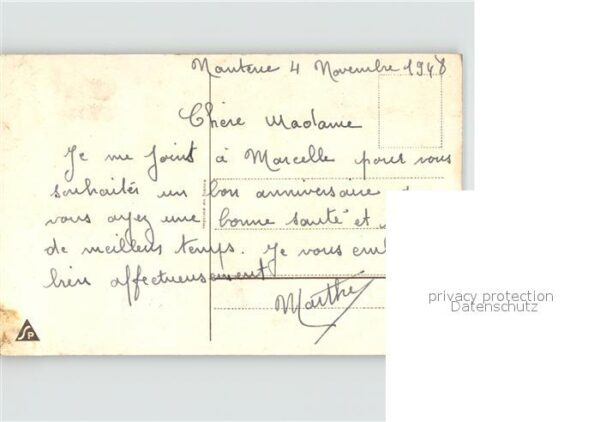 Nanterre 4 Novembre 1948
Chère Madame
Je me joint à Marcelle pour vous
souhaités un bon anniversaire
vous ayez une bonne santé et
de meilleurs temps. Je vous
bien affectueusement
Marthe
SP
privacy protection
Datenschutz